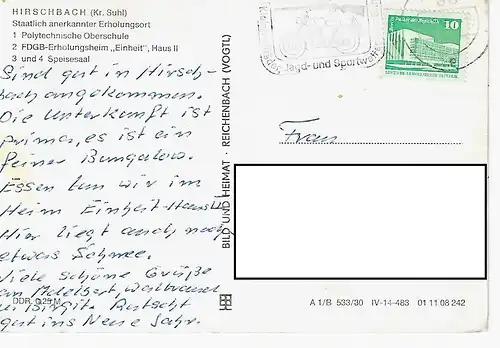 HIRSCHBACH (Kr. Suhl)
Staatlich anerkannter Erholungsort
1 Polytechnische Oberschule
2 FDGB-Erholungsheim „Einheit", Haus II
3 und 4 Speisesaal
Sind gut in Hirsch-
bach angekommen.
Die Unterkunft ist
prima, es ist ein
feiner Bungalow.
Essen tun wir im
Heim Einheit-Haus II
Hier liegt auch noch
etwas Schnee.
Viele schöne Grüße
an Adelbert, Waltraud
u. Birgita Rutscht
gut ins Neue Jahr.
DDR 0,25 M
BILD UND HEIMAT · REICHENBACH (VOGTL)
Jagd- und Sportwaffen
10
Frau
A 1/B 533/30 IV-14-483 01 11 08 242